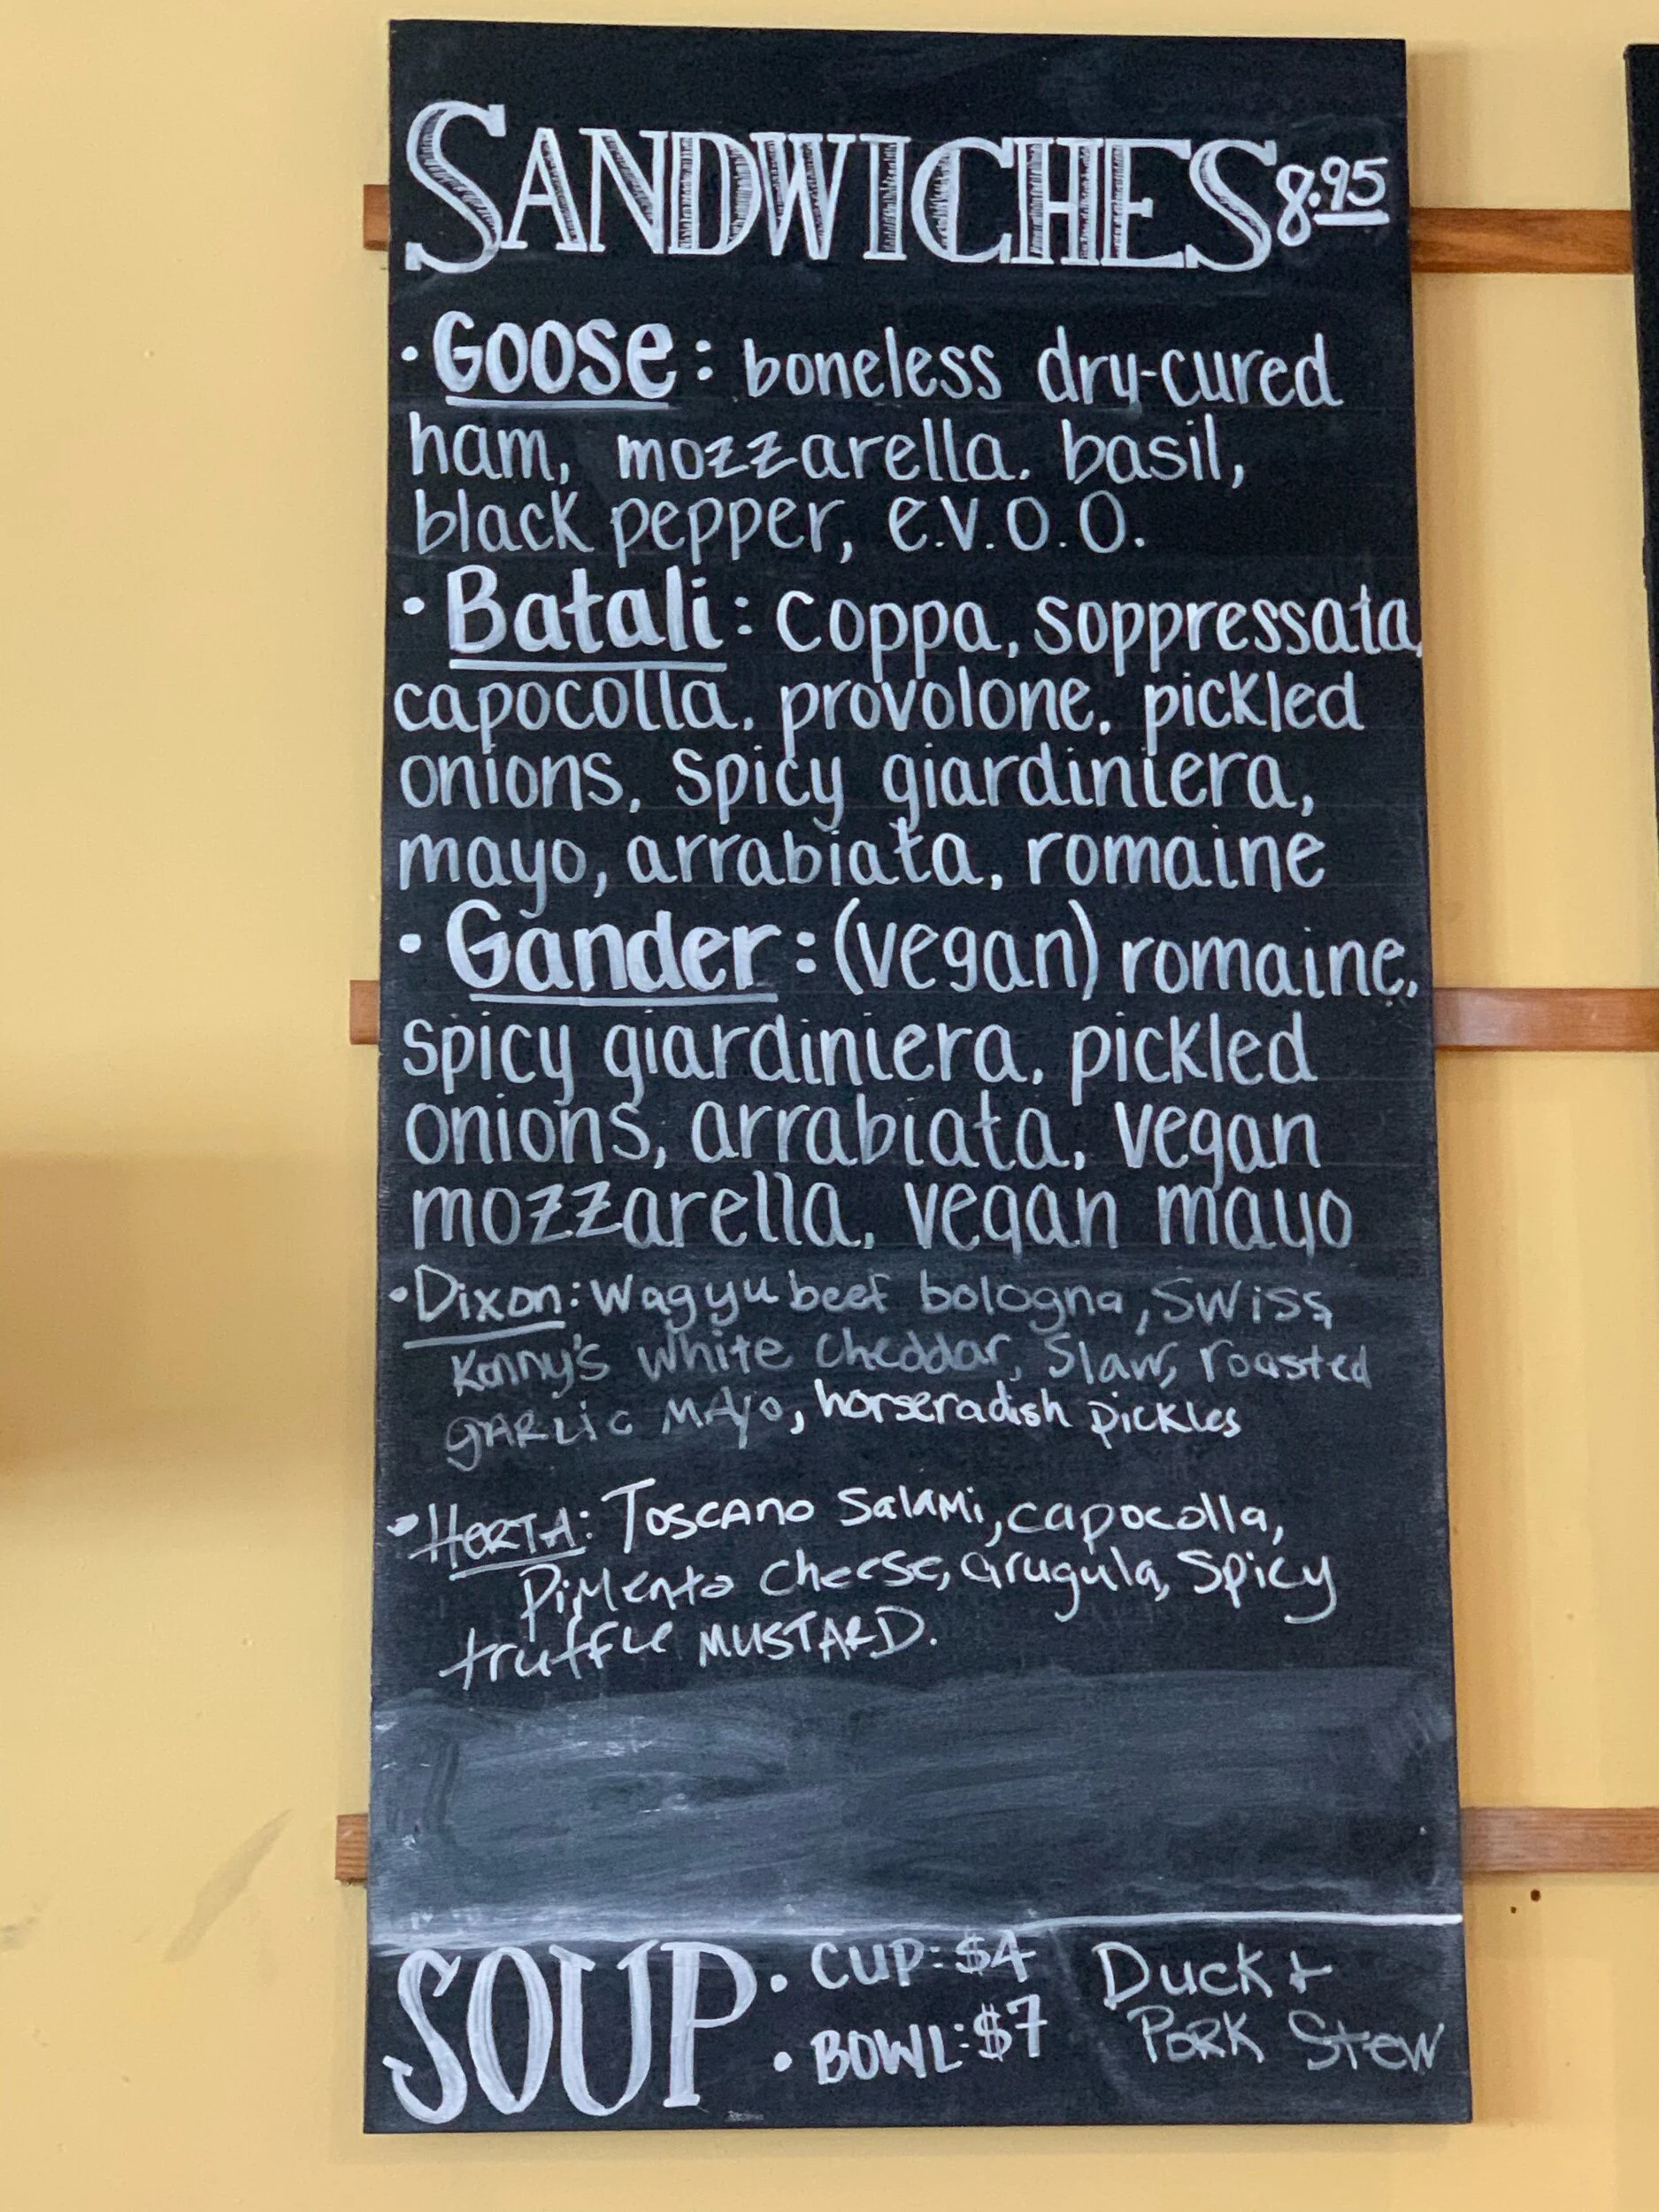 SANDWICHES 8.95
• Goose: boneless dry-cured
ham, mozzarella, basil,
black pepper, e.v.o.o.
• Batali: Coppa, soppressata,
capocolla, provolone, pickled
onions, spicy giardiniera,
mayo, arrabiata, romaine
• Gander: (vegan) romaine,
spicy giardiniera, pickled
onions, arrabiata, vegan
mozzarella, vegan mayo
• Dixon: Wagyu beef bologna, Swiss,
Kenny's white cheddar, Slaw, roasted
GARLIC MAYO, horseradish pickles
• HERTA: Toscano Salami, capocolla,
Pimento cheese, arugula, Spicy
truffle MUSTARD.
SOUP • CUP: $4 Duck +
• BOWL: $7 PORK Stew